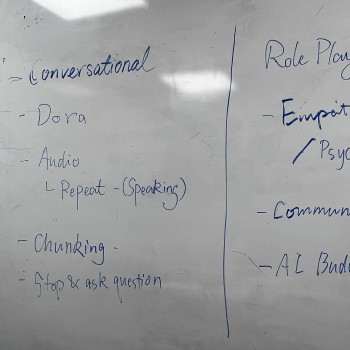 - Conversational
- Dora
- Audio
└ Repeat - (Speaking)
- Chunking -
- Stop & ask question
Role Play
- Empat
/ Psyc
- Commun
- AI Budd